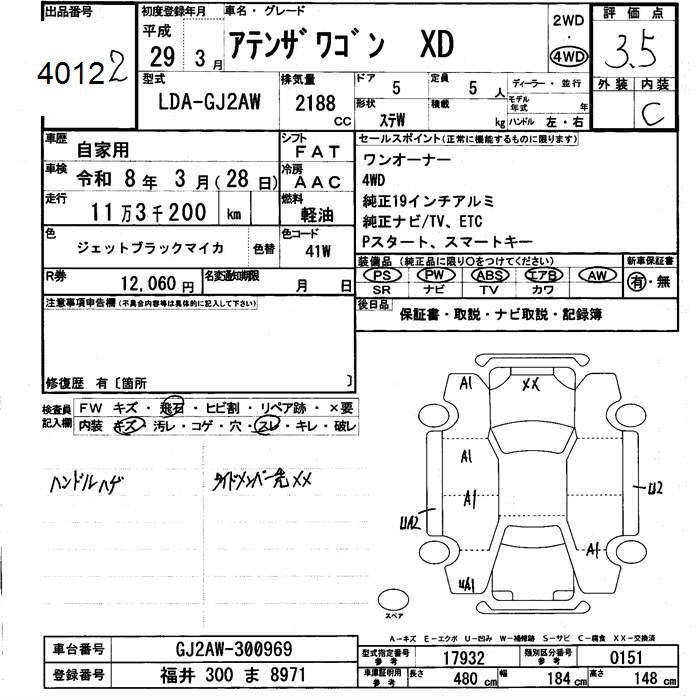 出品番号
40122
初度登録年月
平成
29 3月
車名・グレード
アテンザワゴン XD
2WD
・
4WD
評価点
3.5
外装 内装
C
型式
LDA-GJ2AW
排気量
2188
CC
ドア 5
定員 5人
形状 ステW
積載 kg
ディーラー・並行
モデル年式 年
ハンドル 左・右
車歴
自家用
車検
令和 8年 3月(28日)
走行
11万3千200 km
シフト
FAT
冷房
AAC
燃料
軽油
色
ジェットブラックマイカ
色替
色コード
41W
R券
12,060円
名変通知期限 月 日
セールスポイント(正常に機能するものに限ります)
ワンオーナー
4WD
純正19インチアルミ
純正ナビ/TV、ETC
Pスタート、スマートキー
装備品(純正品に限り○をつけてください)
PS PW ABS エアB AW
SR ナビ TV カワ
新車保証書
有・無
後日品
保証書・取説・ナビ取説・記録簿
注意事項申告欄(不具合内容等は具体的に記入して下さい)
修復歴 有〔箇所 〕
検査員記入欄
FW キズ・飛石・ヒビ割・リペア跡・×要
内装 キズ・汚レ・コゲ・穴・スレ・キレ・破レ
ハンドルハゲ
サイドメンバー先XX
A1
XX
A1
A1
U2
UA2
A1
UA1
スペア
A-キズ E-エクボ U-凹み W-補修跡 S-サビ C-腐食 XX-交換済
車台番号
GJ2AW-300969
登録番号
福井 300 ま 8971
型式指定番号
参考
17932
類別区分番号
参考
0151
車庫証明用
参考
長さ 480 cm
幅 184 cm
高さ 148 cm